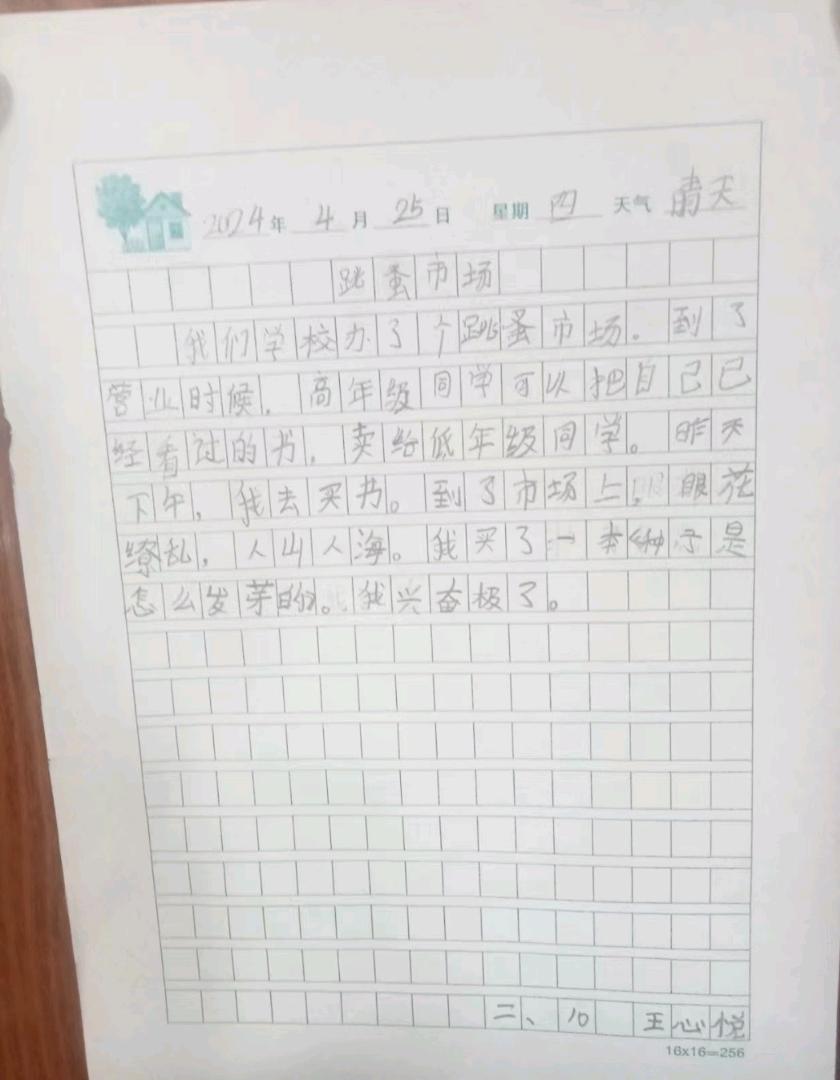 2024年 4月 25日 星期 四 天气 晴天
跳蚤市场
我们学校办了个跳蚤市场。到了
营业时候，高年级同学可以把自己已
经看过的书，卖给低年级同学。昨天
下午，我去买书。到了市场上，眼花
缭乱，人山人海。我买了一本《种子是
怎么发芽的》。我兴奋极了。
二、10 王心悦
16x16=256